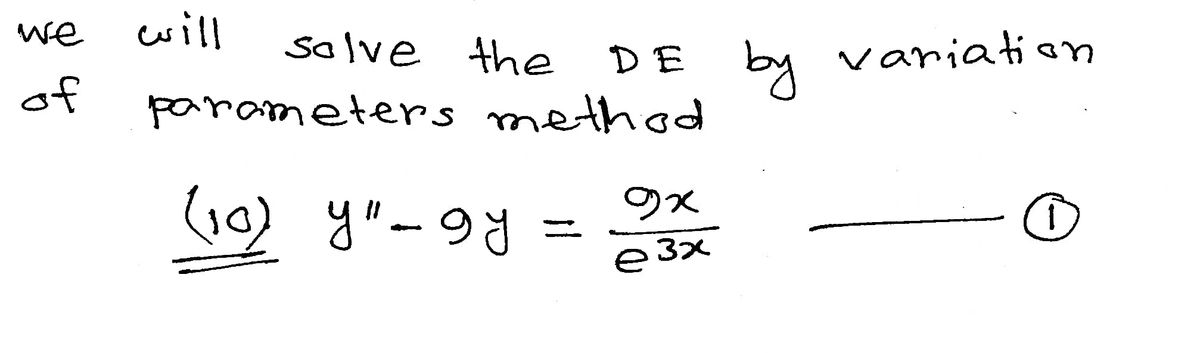 we will solve the DE by variation
of parameters method
(10) y'' - 9y = 9x / e^{3x} ——— ①